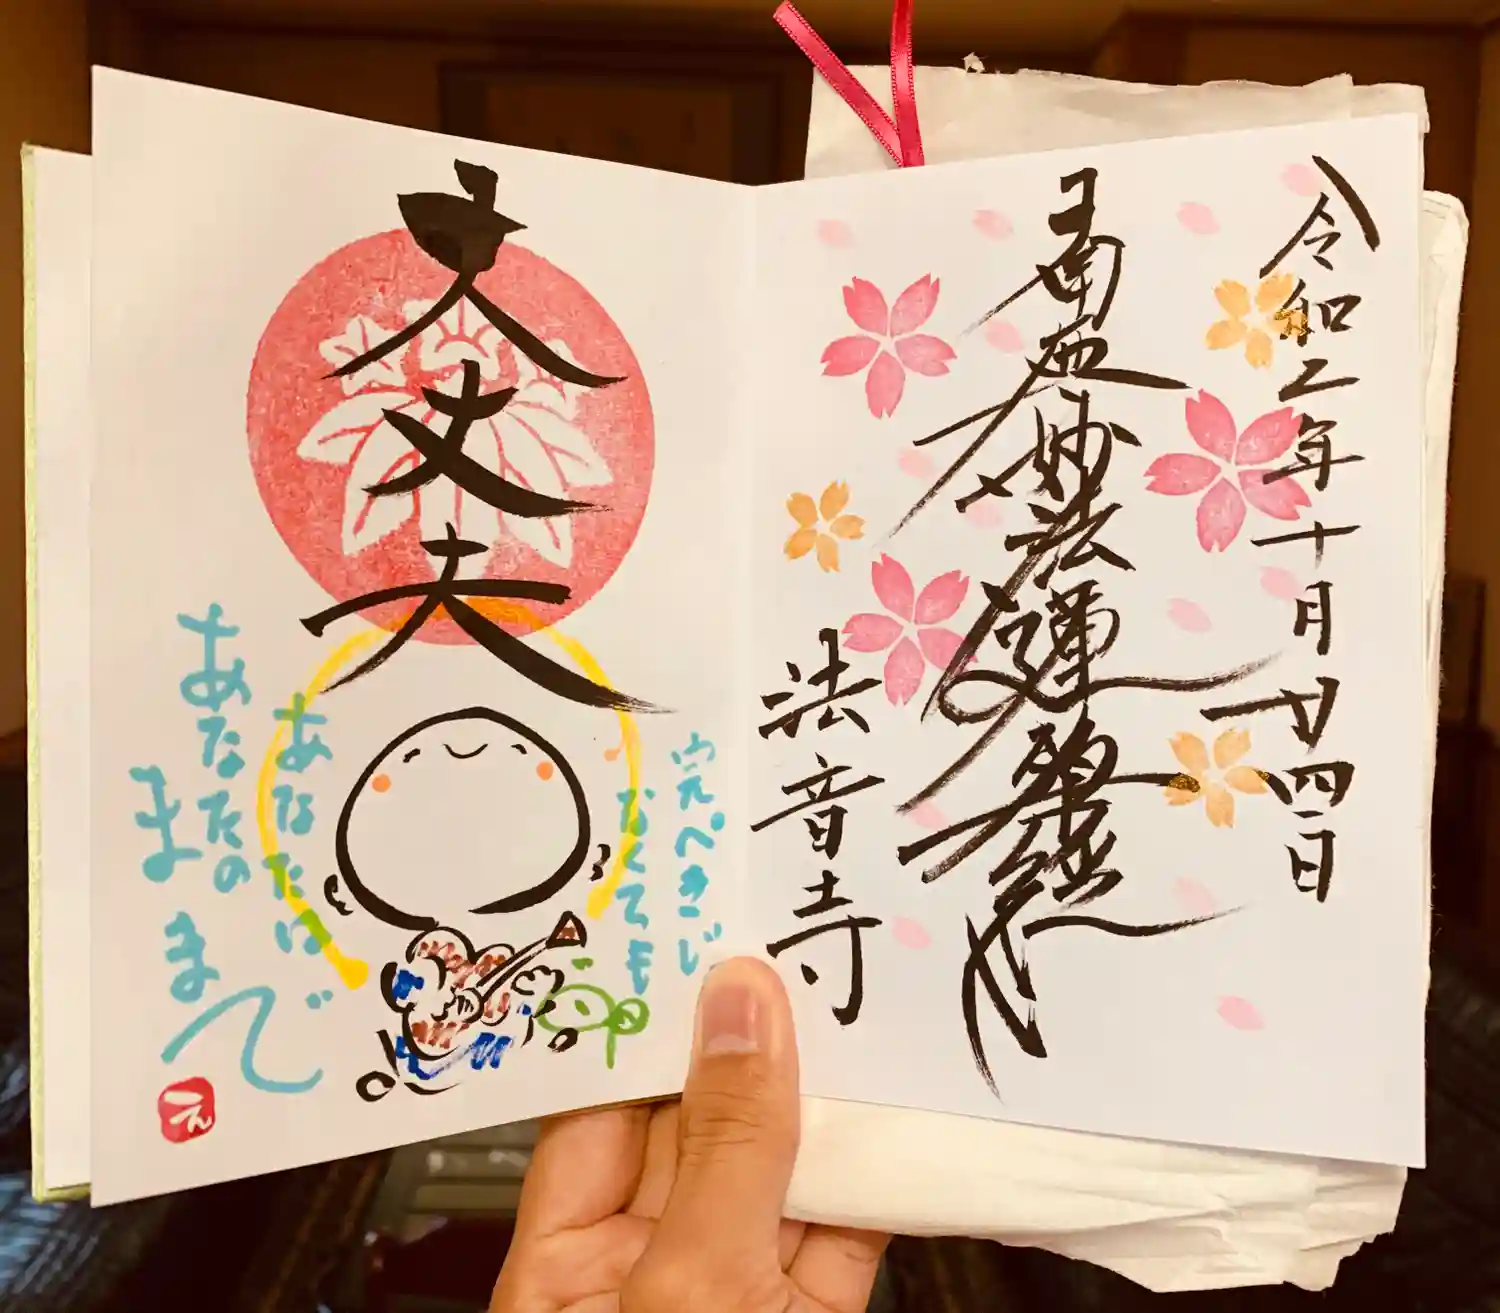 令和二年十月廿四日
南無妙法蓮華経
法音寺
大丈夫
完ぺきじ
なくても
あなたは
あなたの
まま
まで
え